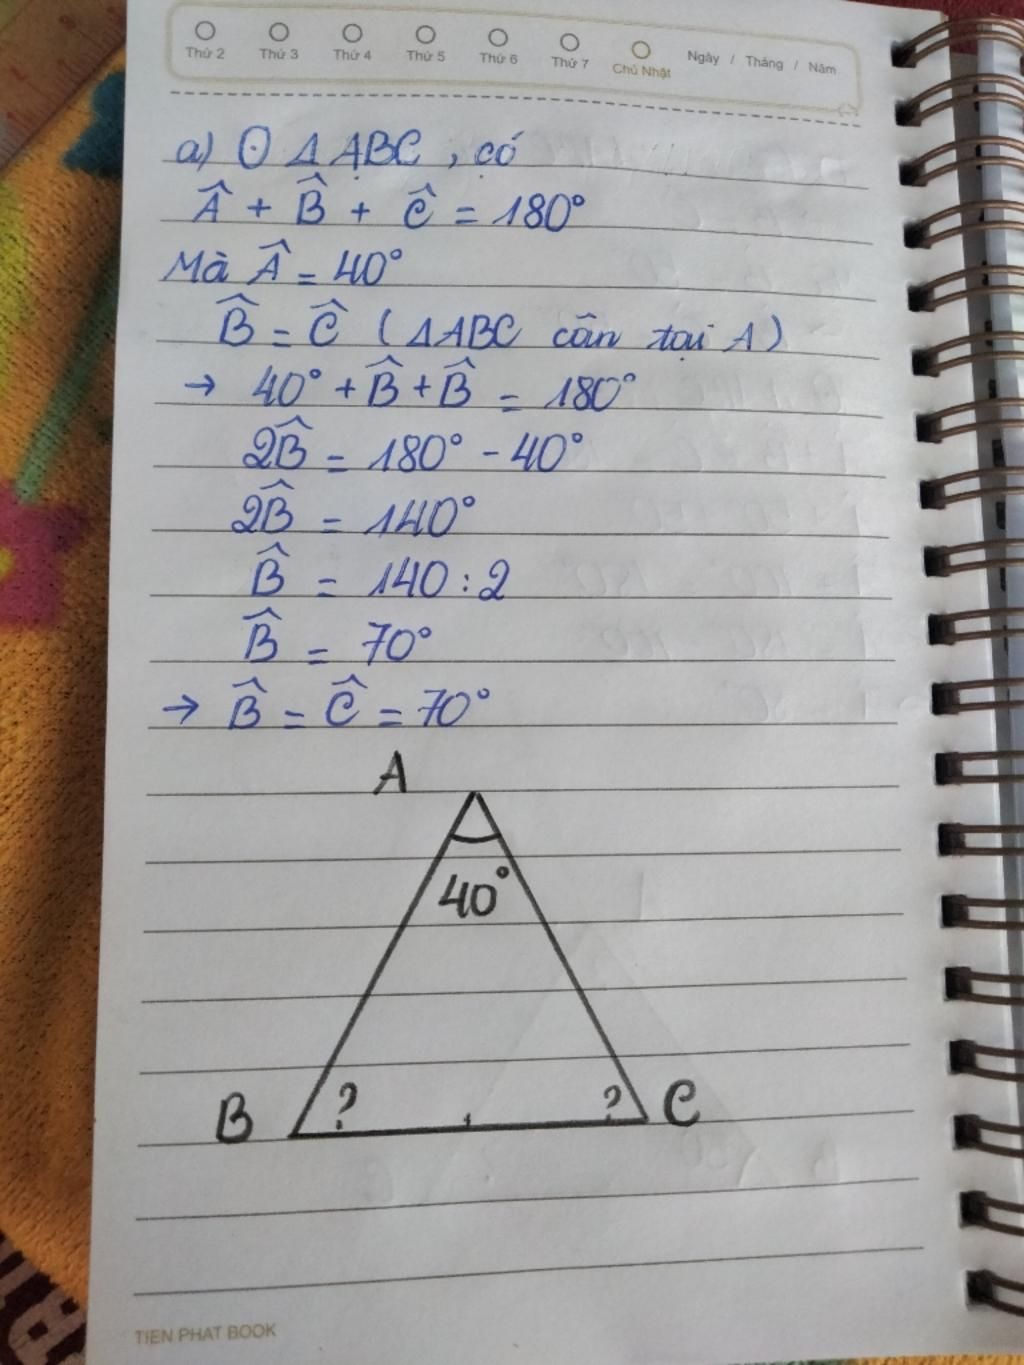 Thứ 2 Thứ 3 Thứ 4 Thứ 5 Thứ 6 Thứ 7 Chủ Nhật Ngày / Tháng / Năm
a) ⊙ Δ ABC , có
Â + B̂ + Ĉ = 180°
Mà Â = 40°
B̂ = Ĉ (ΔABC cân tại A)
→ 40° + B̂ + B̂ = 180°
2B̂ = 180° - 40°
2B̂ = 140°
B̂ = 140 : 2
B̂ = 70°
→ B̂ = Ĉ = 70°
A
40°
B ? ? C
TIEN PHAT BOOK